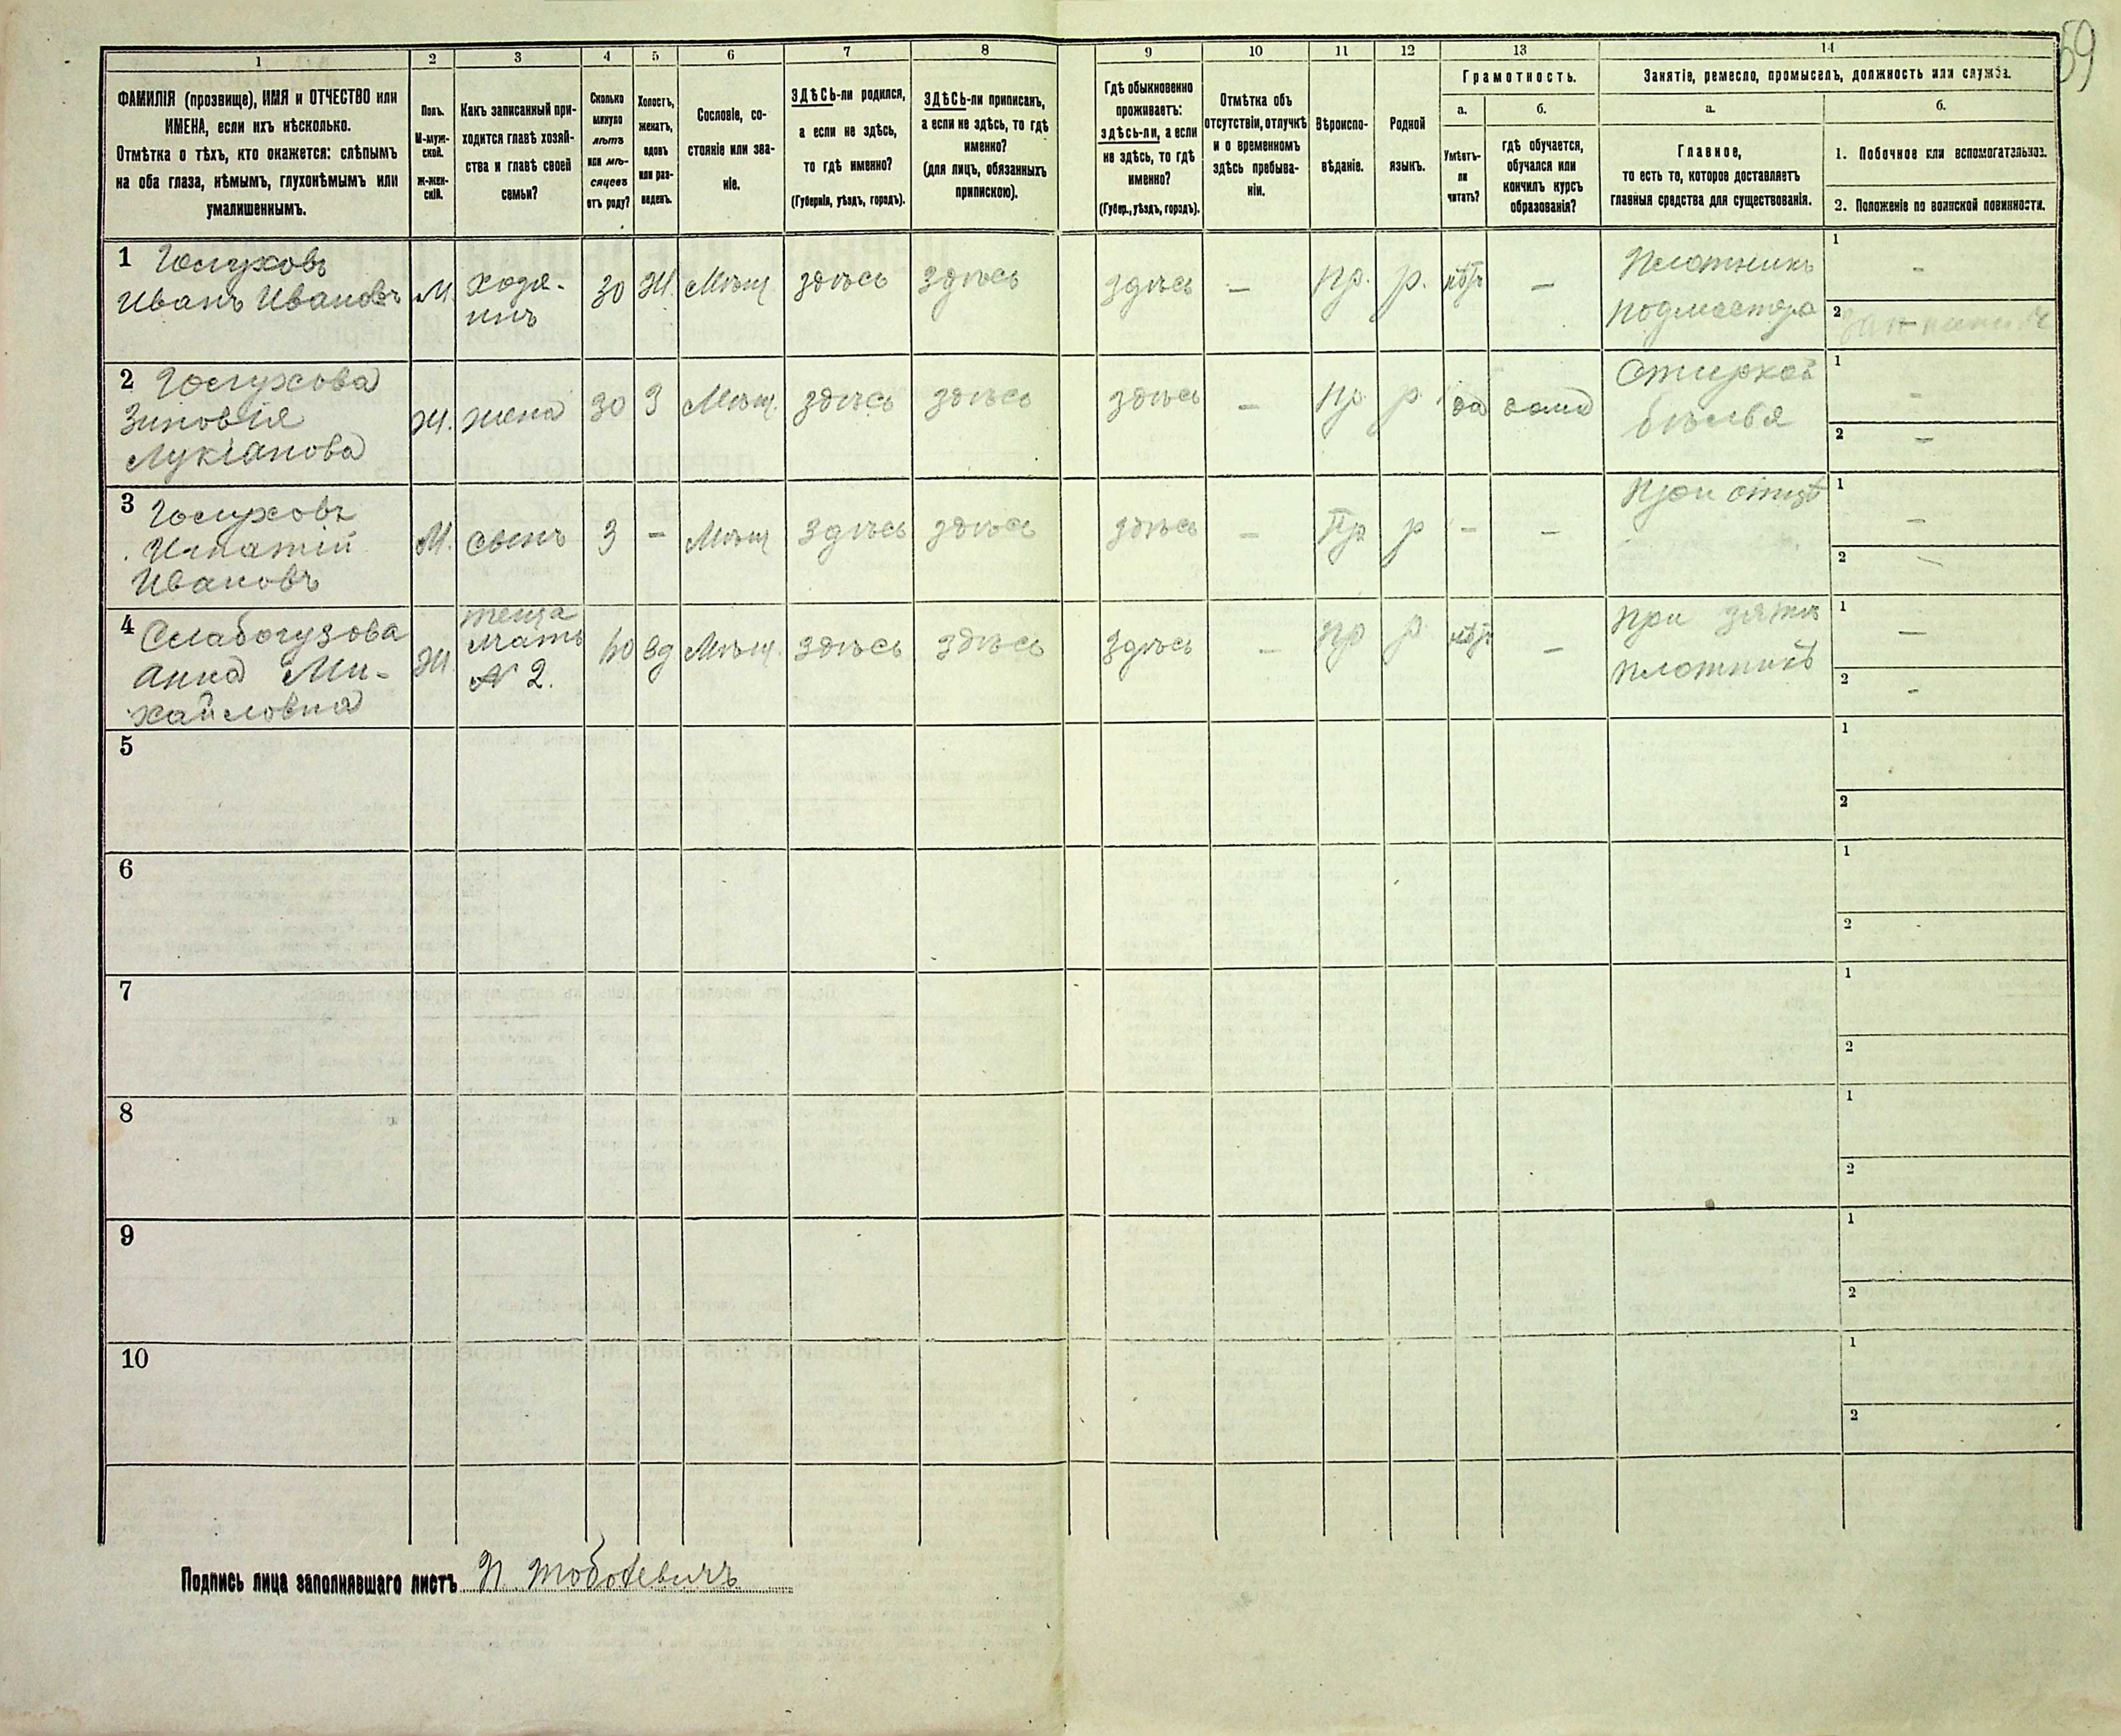 59
1
2
3
4
5
6
7
8
9
10
11
12
13
14
ФАМИЛІЯ (прозвище), ИМЯ и ОТЧЕСТВО или
ИМЕНА, если ихъ нѣсколько.
Отмѣтка о тѣхъ, кто окажется: слѣпымъ
на оба глаза, нѣмымъ, глухонѣмымъ или
умалишеннымъ.
Полъ.
М-муж-
ской.
Ж-жен-
скій.
Какъ записанный при-
ходится главѣ хозяй-
ства и главѣ своей
семьи?
Сколько
минуло
лѣтъ
или мѣ-
сяцевъ
отъ роду?
Холостъ,
женатъ,
вдовъ
или раз-
веденъ.
Сословіе, со-
стояніе или зва-
ніе.
ЗДѢСЬ-ли родился,
а если не здѣсь,
то гдѣ именно?
(Губернія, уѣздъ, городъ).
ЗДѢСЬ-ли приписанъ,
а если не здѣсь, то гдѣ
именно?
(для лицъ, обязанныхъ
припискою).
Гдѣ обыкновенно
проживаетъ:
здѣсь-ли, а если
не здѣсь, то гдѣ
именно?
(Губер., уѣздъ, городъ).
Отмѣтка объ
отсутствіи, отлучкѣ
и о временномъ
здѣсь пребыва-
ніи.
Вѣроиспо-
вѣданіе.
Родной
языкъ.
Грамотность.
а.
Умѣетъ-
ли
читать?
б.
гдѣ обучается,
обучался или
кончилъ курсъ
образованія?
Занятіе, ремесло, промыселъ, должность или служба.
а.
Главное,
то есть то, которое доставляетъ
главныя средства для существованія.
б.
1. Побочное или вспомогательное.
2. Положеніе по воинской повинности.
1
Иванъ Ивановъ
М.
Хозя-
инъ
30
Ж.
Мѣщ.
здѣсь
здѣсь
здѣсь
—
Пр.
р.
нѣтъ
—
Плотникъ
подмастера
1
-
2
2
Зиновія
Лукіанова
Ж.
жена
30
З
Мѣщ.
здѣсь
здѣсь
здѣсь
—
Пр
р
да
дома
Стиркой
бѣлья
1
-
2
—
3
Игнатій
Ивановъ
М.
сынъ
3
-
Мѣщ
здѣсь
здѣсь
здѣсь
—
Пр
р
-
—
При отцѣ
1
—
2
4
Слабогузова
Анна Ми-
хайловна
Ж
теща
мать
N 2.
вд
Мѣщ.
здѣсь
здѣсь
здѣсь
—
Пр
р
нѣтъ
—
При зятѣ
плотникѣ
1
—
2
-
5
1
2
6
1
2
7
1
2
8
1
2
9
1
2
10
1
2
Подпись лица заполнявшаго листъ